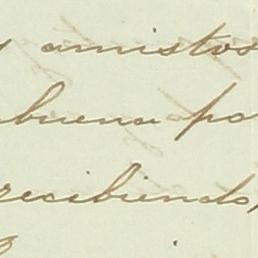 y amistos
buena po
recibiendo,